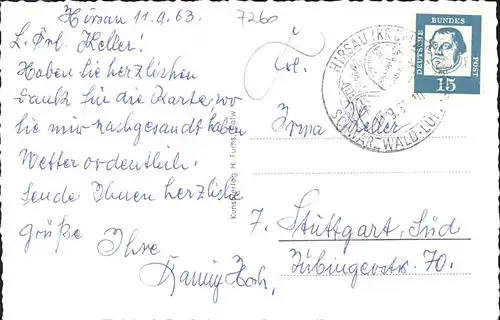 Hirsau 11.9.63.
7260
L. Frl. Keller!
Haben Sie herzlichen
Dank für die Karte, wo
Sie mir nachgesandt haben
Wetter ordentlich.
Sende Ihnen herzliche
Grüße Ihre
Kunstverlag H. Fuchs, Calw
Frl.
Irma Keller
7. Stuttgart, Süd
Tübingerstr. 70.
HIRSAU (KR C
SCHWARZWALD-LUF
DEUTSCHE
BUNDES
POST
15